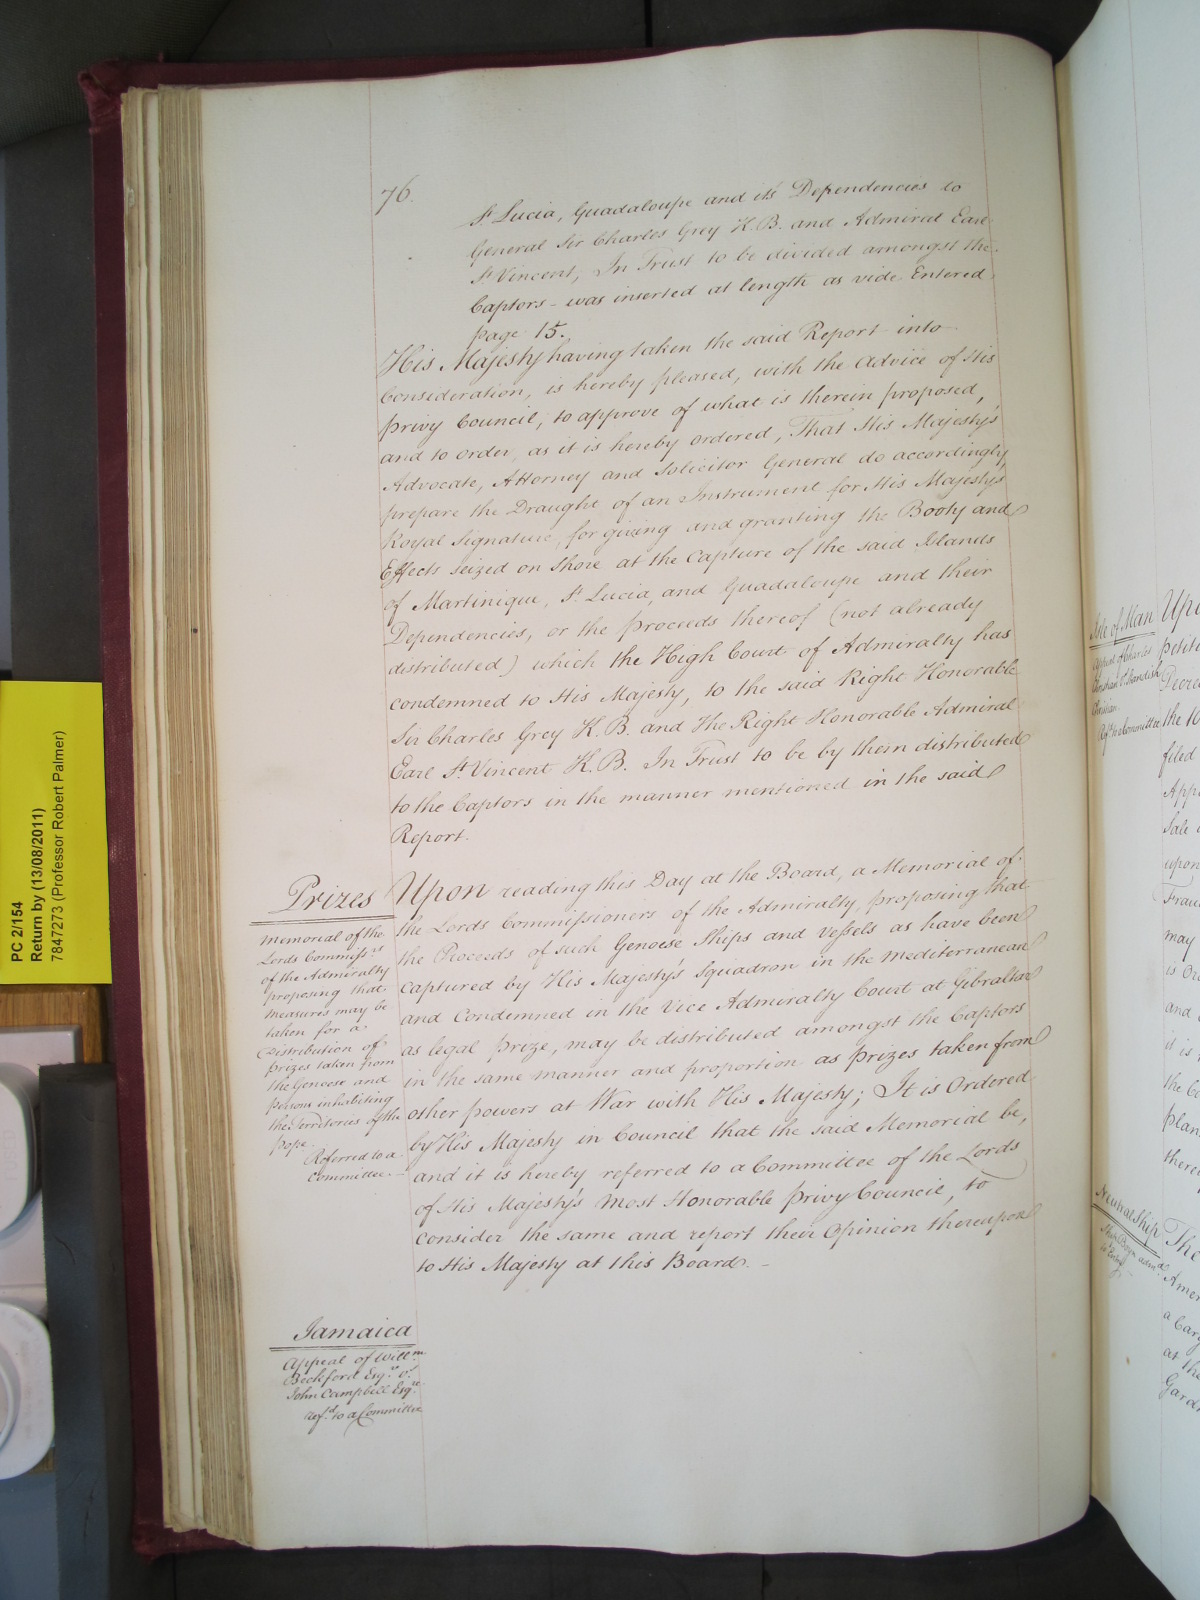 76.
St. Lucia, Guadaloupe and its Dependencies to
General Sir Charles Grey K.B. and Admiral Earl
St. Vincent, In Trust to be divided amongst the
Captors - was inserted at length as vide Entered
page 15.
His Majesty having taken the said Report into
Consideration, is hereby pleased, with the advice of His
Privy Council, to approve of what is therein proposed,
and to order, as it is hereby ordered, That His Majesty's
Advocate, Attorney and Solicitor General do accordingly
prepare the Draught of an Instrument for His Majesty's
Royal Signature, for giving and granting the Booty and
Effects seized on Shore at the Capture of the said Islands
of Martinique, St. Lucia, and Guadaloupe and their
Dependencies, or the proceeds thereof (not already
distributed) which the High Court of Admiralty has
condemned to His Majesty, to the said Right Honorable
Sir Charles Grey K.B. and The Right Honorable Admiral
Earl St. Vincent K.B. In Trust to be by them distributed
to the Captors in the manner mentioned in the said
Report.
Prizes
Memorial of the
Lords Commissrs
of the Admiralty
proposing that
Measures may be
taken for a
Distribution of
prizes taken from
the Genoese and
persons inhabiting
the Territories of the
Pope.
Referred to a
Committee.
Upon reading this Day at the Board, a Memorial of
the Lords Commissioners of the Admiralty, proposing that
the Proceeds of such Genoese Ships and Vessels as have been
captured by His Majesty's Squadron in the Mediterranean
and Condemned in the Vice Admiralty Court at Gibraltar
as legal prize, may be distributed amongst the Captors
in the same manner and proportion as prizes taken from
other powers at War with His Majesty; It is Ordered
by His Majesty in Council that the said Memorial be,
and it is hereby referred to a Committee of the Lords
of His Majesty's Most Honorable Privy Council, to
consider the same and report their Opinion thereupon
to His Majesty at this Board. -
Jamaica
Appeal of Willm
Beckford Esqr. v.
John Campbell Esqre.
refd. to a Committee
PC 2/154
Return by (13/08/2011)
7847273 (Professor Robert Palmer)
Isle of Man
Appeal of Charles
Christian
Upo
petiti
Decree
the
filed
App
Sale
upon
Frau
may
is Or
and
it is
the Co
plan
there
Neutral Ship
The
Amer
a Carg
at the
Gard